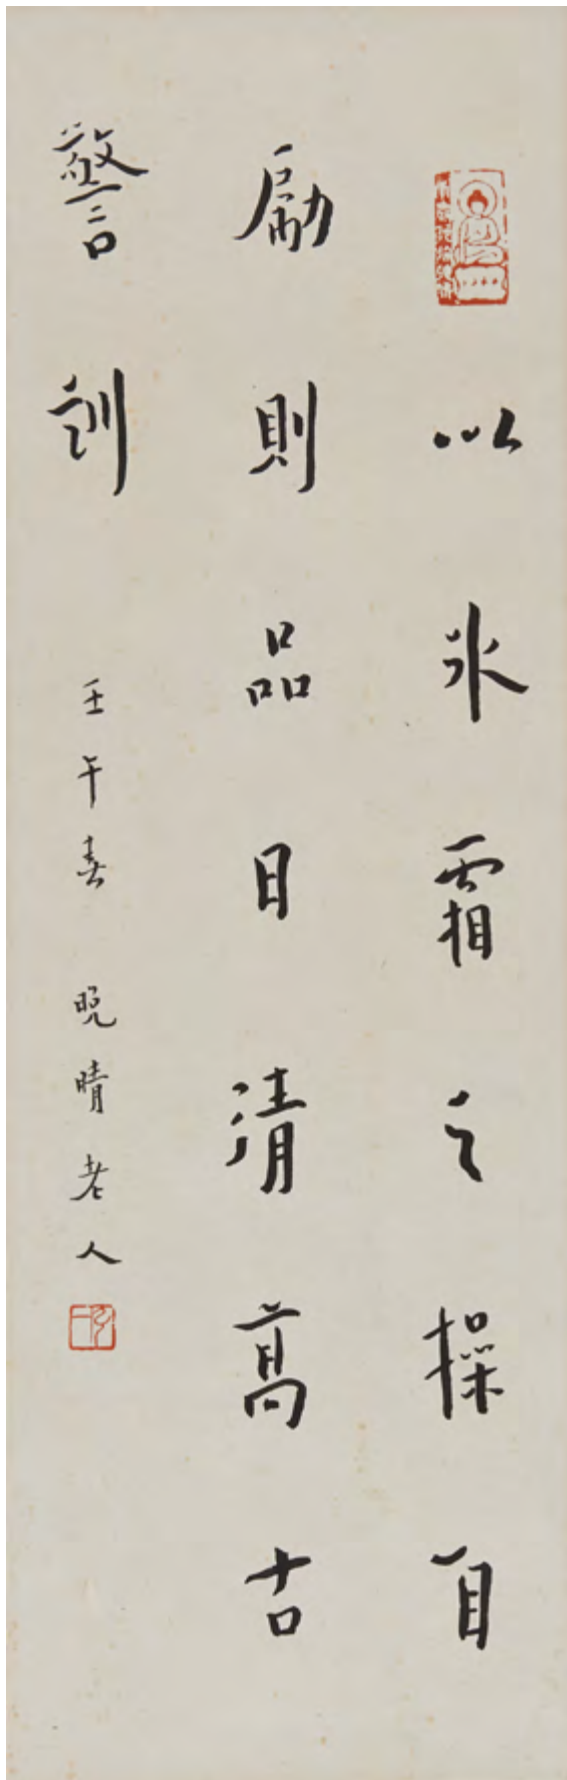 以冰霜之操自
勵則品日清高古
警訓
壬午春 晚晴老人